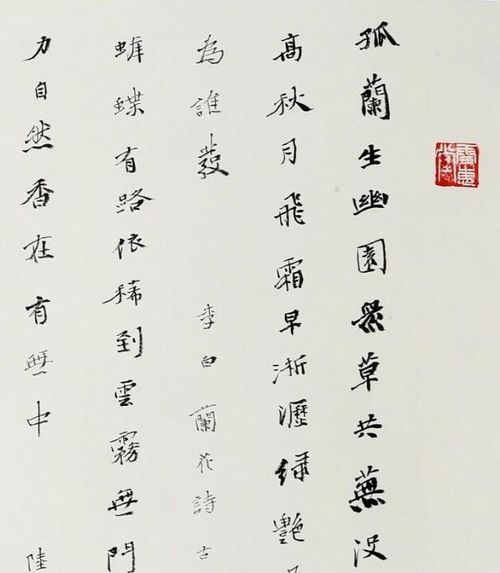 孤蘭生幽園衆草共蕪没
高秋月飛霜早淅瀝緑艷
為誰發 李白蘭花詩古
蜂蝶有路依稀到雲霧無門
力自然香在有無中 陸